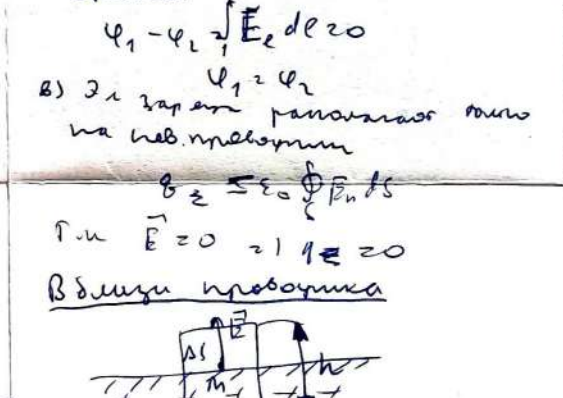 φ₁ - φ₂ = ∫₁ E_ℓ dℓ = 0
φ₁ = φ₂
в) Эл заряд располагают только
на пов. проводника
q_Σ = ε₀ ∮_S E_n dS
Т.к E⃗ = 0 => q_Σ = 0
Вблизи проводника
E⃗
ΔS
h